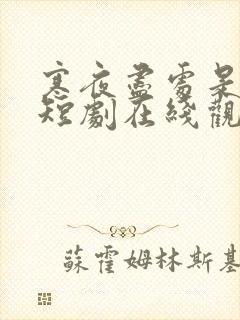 寒夜盡處是
短劇在綫觀
蘇霍姆林斯基